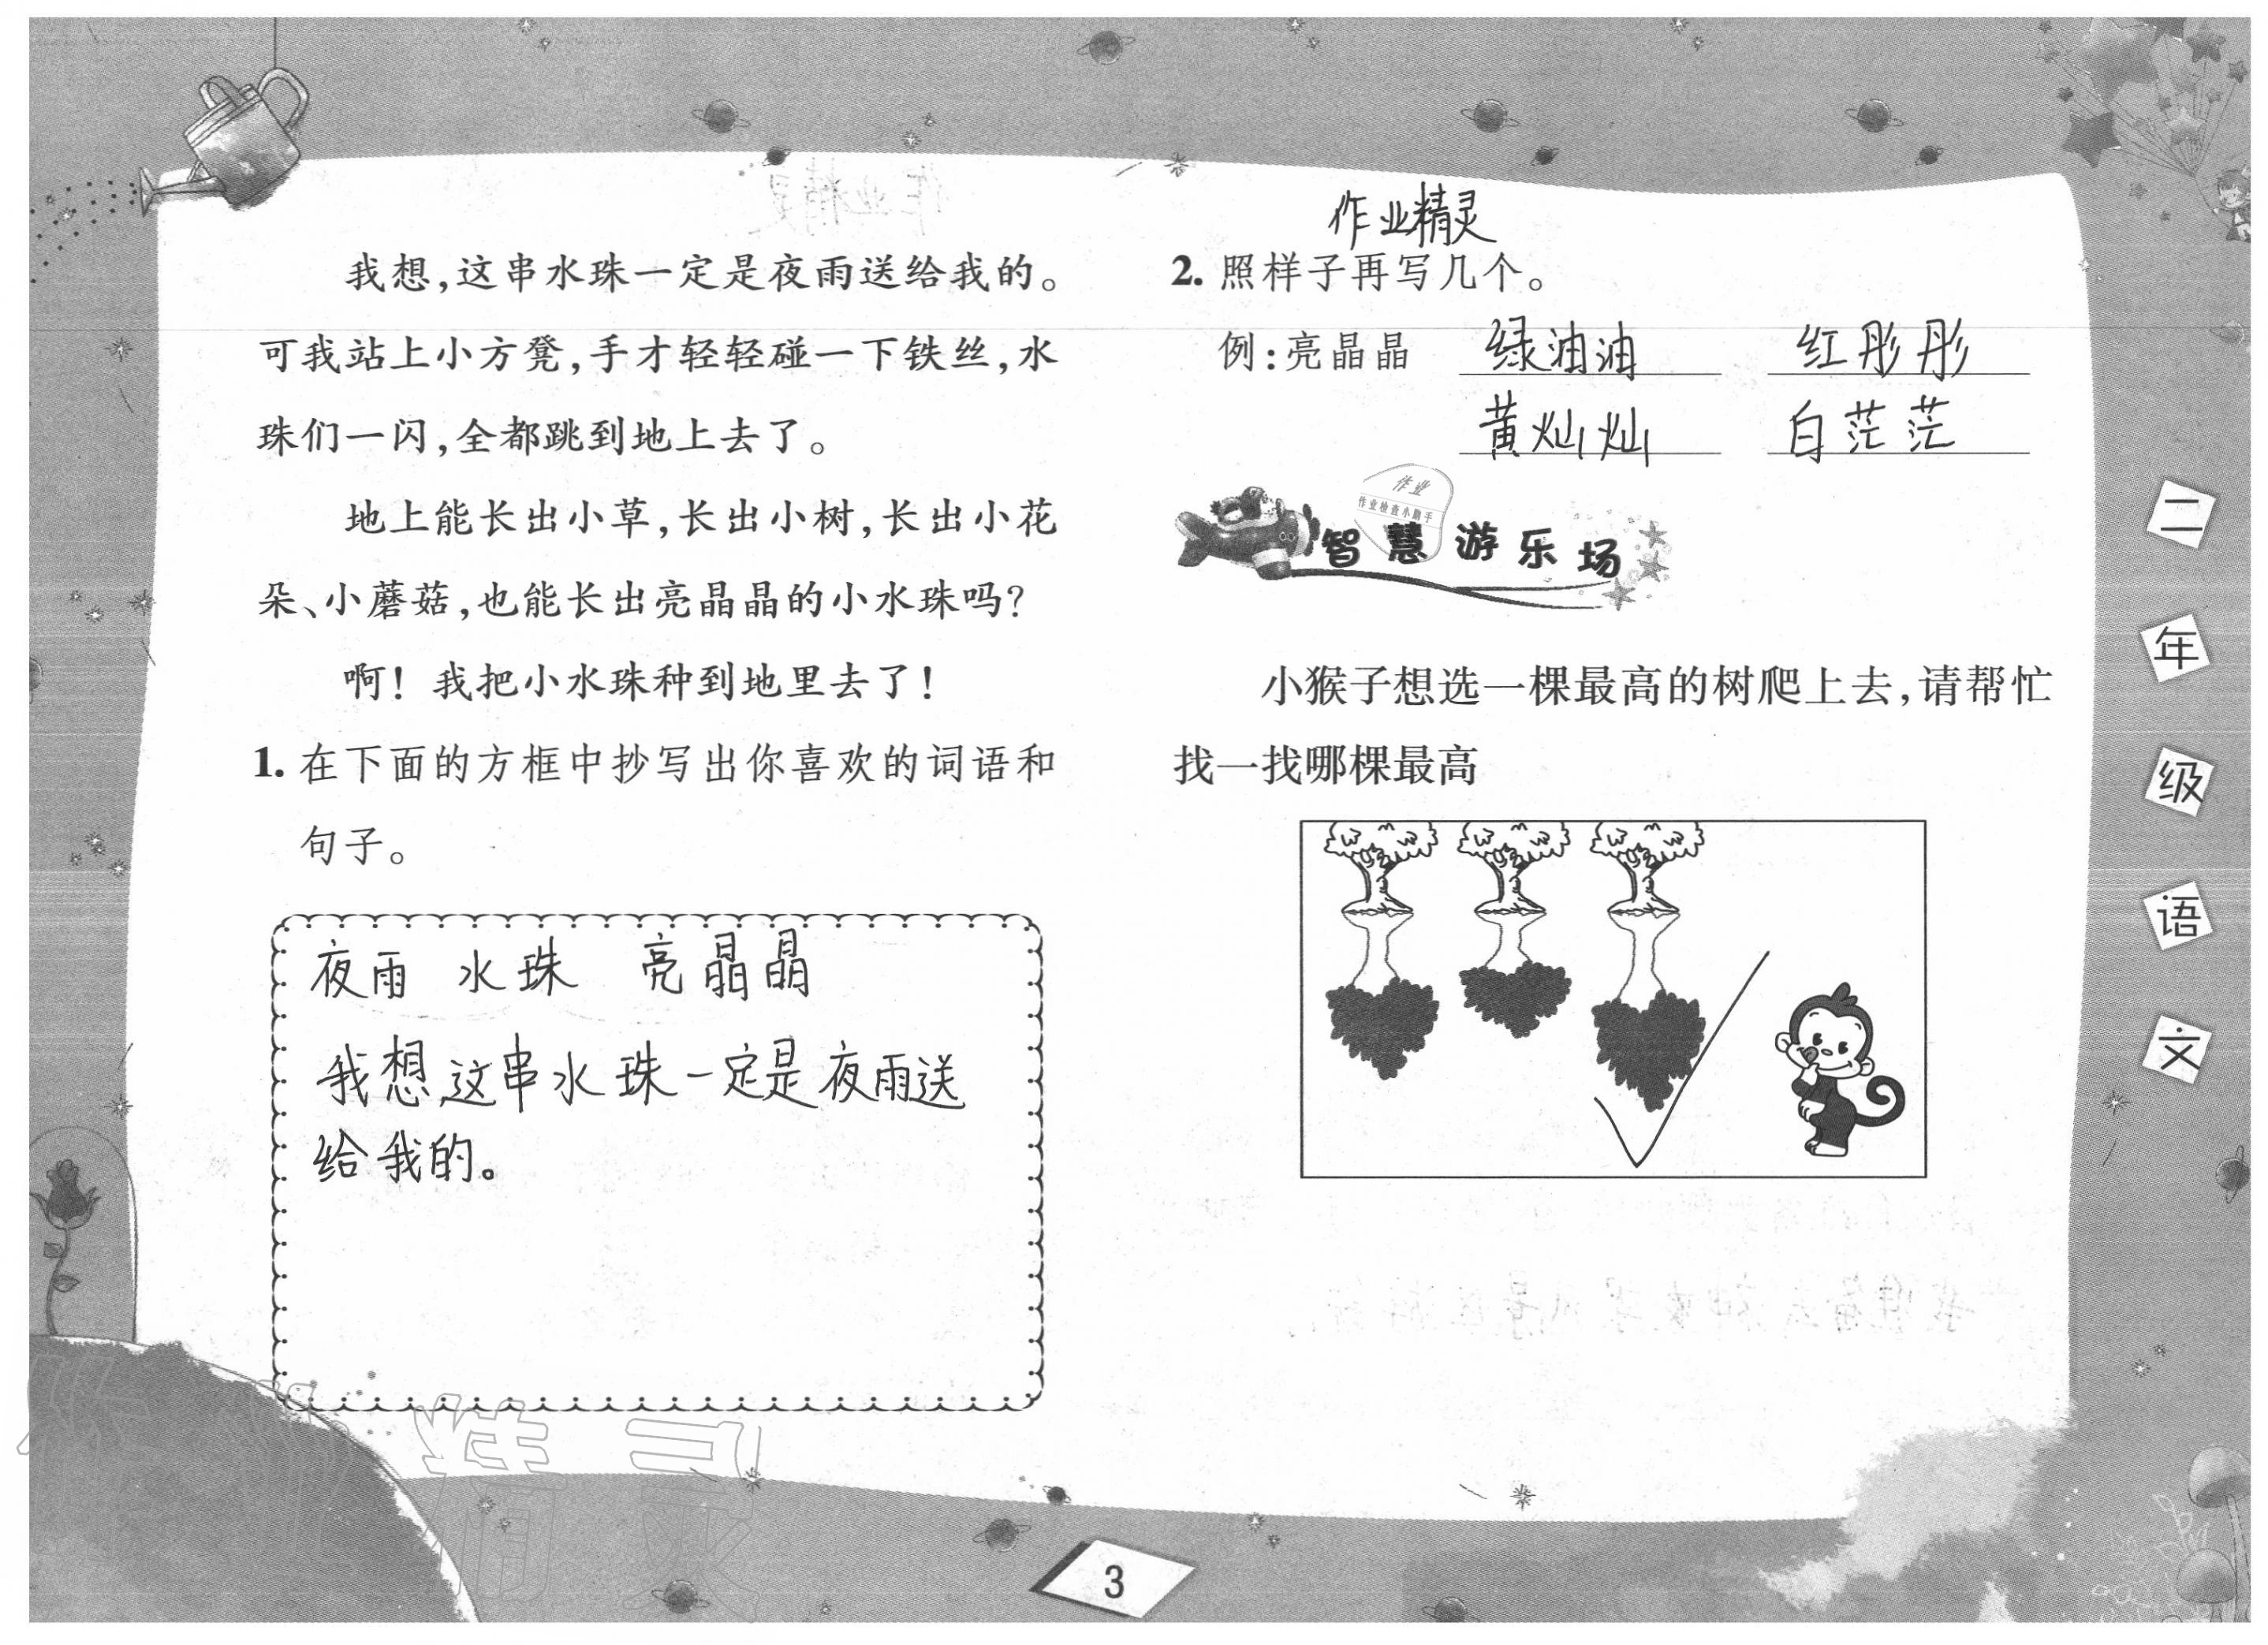 我想,这串水珠一定是夜雨送给我的。
可我站上小方凳,手才轻轻碰一下铁丝,水
珠们一闪,全都跳到地上去了。
地上能长出小草,长出小树,长出小花
朵、小蘑菇,也能长出亮晶晶的小水珠吗?
啊!我把小水珠种到地里去了!
1. 在下面的方框中抄写出你喜欢的词语和
句子。
夜雨 水珠 亮晶晶
我想,这串水珠一定是夜雨送
给我的。
作业精灵
2. 照样子再写几个。
例:亮晶晶 绿油油 红彤彤
黄灿灿 白茫茫
作业
作业检查小助手
智慧游乐场
小猴子想选一棵最高的树爬上去,请帮忙
找一找哪棵最高
二年级语文
3